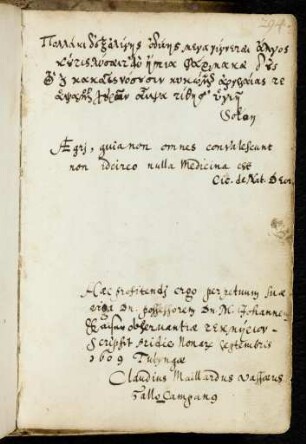 294.
Πολλάκι δ' ἐξ ὀλίγης ὀδύνης μέγα γίγνεται ἄλγος
κοὐκ ἂν λύσαιτ'
ἤπια φάρμακα δοὺς
τὸν δὲ κακαῖς νούσοισι κυκώμενον ἀργαλέαις τε
ἁψάμενος χειροῖν αἶψα τίθησ' ὑγιῆ
Solon
Ægri, quia non omnes convalescunt
non idcirco nulla Medicina est
Cic. de Nat. Deor.
Hæc profitendj ergo perpetuum suæ
erga Dn. possessorem Dn. M. Johannem
observantiæ τεκμήριον
scripsit pridie Nonar Septembris
1609 Tubingæ
Claudius Maillardus Vassæus
Gallo Campanus